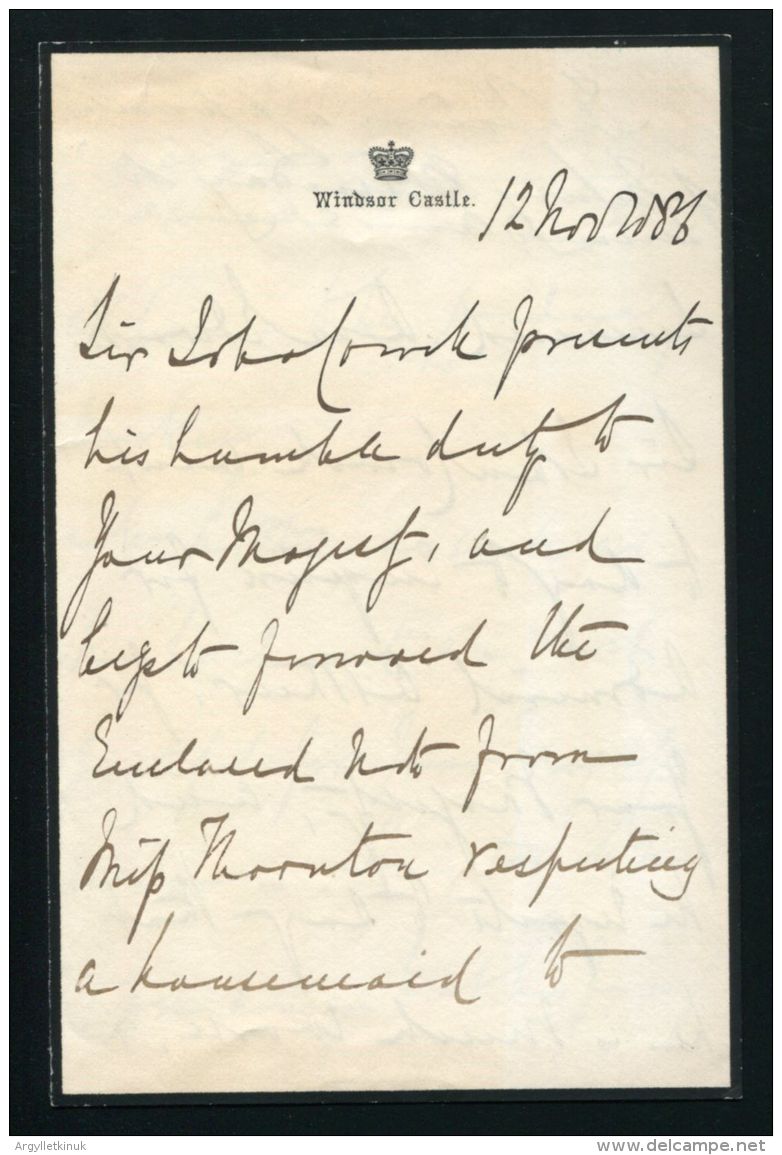 Windsor Castle.
12 Nov 1886
Sir John Cowell presents
his humble duty to
Your Majesty, and
begs to forward the
Enclosed note from
Miss Thornton respecting
a housemaid to
Argylletkinuk
delcampe.net